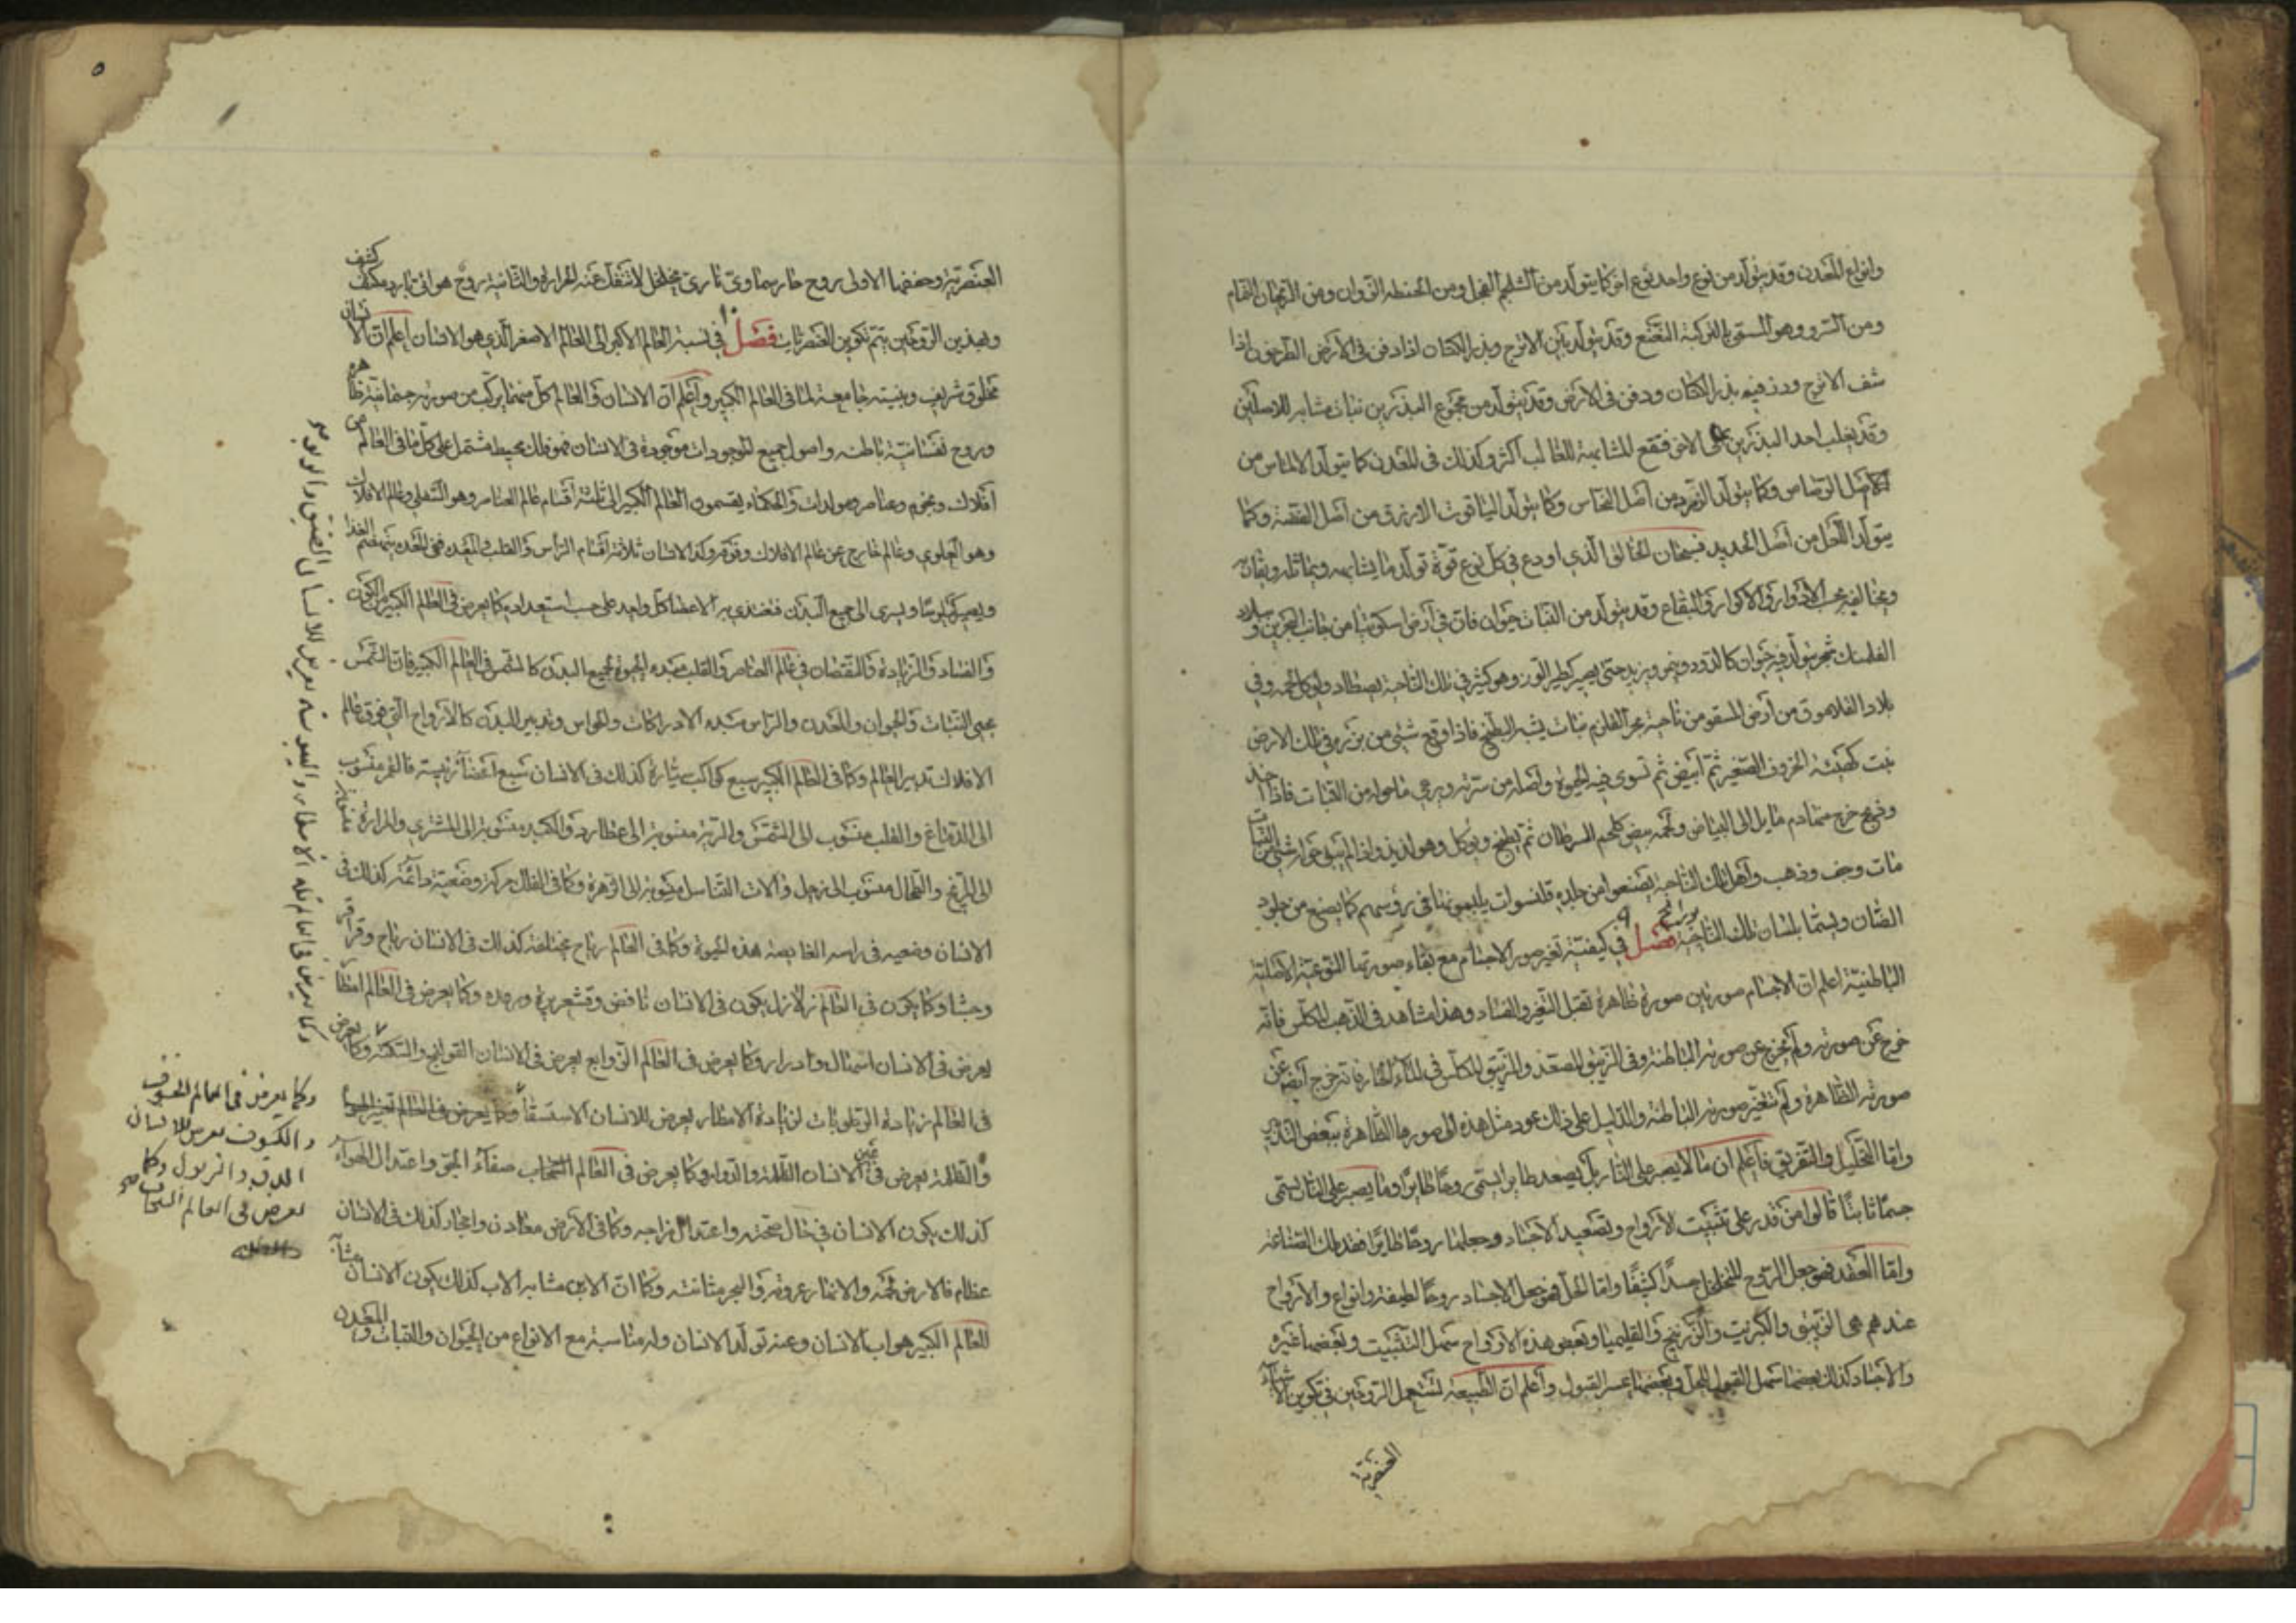 وانواع المعدن وقد يتولد من نوع واحد نوع اخر كما يتولد من الشلجم الفجل ومن الحنطه الزوان ومن الريحان النمام
ومن السرو وهو المسمى بالتركية النعنع وقد يتولد بين الاترج وبذر الكتان اذا دفن في الارض الطرخون اذا
شف الاترج ودفن فيه بذر الكتان ودفن في الارض وقد يتولد من مجموع البذرين نبات مشابه للاصلين
وقد يغلب احد البذرين على الاخر فتقع المشابهة للغالب اكثر وكذلك في المعدن كما يتولد الالماس من
اصل الرصاص وكما يتولد الزمرد من اصل النحاس وكما يتولد الياقوت الازرق من اصل الفضة وكما
يتولد اللعل من اصل الحديد فسبحان الخالق الذي اودع في كل نوع قوة تولد ما يشابهه ويماثله ويقارنه
ويخالفه بحسب الادوار والاكوار والبقاع وقد يتولد من النبات حيوان فان في ارض اسكوتيا من جانب البحرين و بلاد
الفلمنك شجر يتولد فيه حيوان كالدود وينمو ويزيد حتى يصير كطير الوز وهو كثير في تلك الناحية يصطاد ويوكل لحمه وفي
بلاد الفلاموق من ارض المسقو من ناحية بحر القلزم نبات يشبه البطيخ فاذا وقع شئ من بزره في تلك الارض
نبت كهيئة الخروف الصغير ثم ابيض ثم تسرى فيه الحيوة واصله من سرته ويرعى ما حوله من النبات فاذا اخذ
وذبح خرج منه دم مايل الى البياض ولحمه ابيض كلحم السرطان ثم يطبخ ويوكل وهو لذيذ واذا لم يبق حوله شئ من النبات
مات وجف وذهب واهل تلك الناحية يصنعوا من جلده قلنسوات يلبسونها في رؤسهم كما يصنع من جلود
الضان ويسمى بلسان تلك الناحية فصل ٩ في كيفية تغير صور الاجسام مع بقاء صورتها النوعية الاصلية
الباطنية اعلم ان الاجسام صورتين صورة ظاهرة تقبل التغير والفساد وهذا مشاهد في الذهب المكلس فانه
خرج عن صورته ولم يخرج عن صورته الباطنة وفي الزيبق المصعد والزيبق المكلس في الماء الحار فانه خرج ايضا عن
صورته الظاهرة ولم تتغير صورته الباطنة والدليل على ذلك عود مثل هذه الى صورها الظاهرة ببعض التدبير
واما التحليل والتفريق فاعلم ان ما لا يصبر على النار بل يصعد طايرا يسمى روحا طايرا وما يصبر على النار يسمى
جسما ثابتا قالوا من قدر على تثبيت الارواح وتصعيد الاجساد وجعلها روحا طايرا فقد ملك الصناعة
واما العقد فهو جعل الروح المتخلخل جسدا كثيفا واما الحل فهو جعل الاجساد روحا لطيفة وانواع والارواح
عندهم هي الزيبق والكبريت والزرنيخ والقليميا وبعض هذه الارواح سهل التثبيت وبعضها غيره
والاجساد كذلك بعضها سهل القبول للحل وبعضها عسر القبول واعلم ان الطبيعة تستعمل الروحين في تكوين الاشياء
العنصرية
٥
العنصرية وحفظها الاولى روح حار سماوى نارى متخلخل لا تنفك عنه الحرارة والثانية روح هوائى بارد مكثف كثيف
وبهذين الروحين يتم تكوين العنصريات فصل ١٠ في نسبة العالم الاكبر الى العالم الاصغر الذي هو الانسان اعلم ان الانسان
مخلوق شريف وبنيته جامعة لما في العالم الكبير واعلم ان الانسان والعالم كل منهما مركب من صورة جسمانية ظاهره
وروح نفسانية باطنه واصول جميع الموجودات موجودة في الانسان فهو فلك محيط مشتمل على كل ما في العالم من
افلاك ونجوم وعناصر ومولدات والحكماء يقسمون العالم الكبير الى ثلثة اقسام عالم العناصر وهو السفلي وعالم الافلاك
وهو العلوى وعالم خارج عن عالم الافلاك وفوقه وكذا الانسان ثلاثة اقسام الراس والقلب والمعدة ففي المعدة ينهضم الغذا
ويصير كيلوسا ويسرى الى جميع البدن فتغتذى به الاعضا كل واحد على حسب استعداده كما يعرض في العالم الكبير من الكون
والفساد والزيادة والنقصان في عالم العناصر والقلب مبدء الحيوة لجميع البدن كالشمس في العالم الكبير فان الشمس
يحيى النبات والحيوان والمعدن والراس مبدء الادراكات والحواس وتدبير البدن كالارواح التي فوق عالم
الافلاك تدبير العالم وكما في العالم الكبير سبع كواكب سيارة كذلك في الانسان سبع اعضا رئيسة فالقمر منسوب
الى الدماغ والقلب منسوب الى الشمس والرية منسوبة الى عطارد والكبد منسوبة الى المشترى والمرارة منسوبة
الى المريخ والطحال منسوب الى زحل والات التناسل منسوبة الى الزهرة وكما في الفلك حركة وضعية دائمة كذلك في
الانسان وضعيه في راسه الغايصة هذه الحيوة وكما في العالم رياح مختلفة كذلك في الانسان رياح وقراقر
وجشا وكما يكون في العالم زلازل يكون في الانسان نافض وقشعريرة ورعدة وكما يعرض في العالم امطار
يعرض في الانسان اسهال وادرار وكما يعرض في العالم الزوابع يعرض في الانسان القوالنج والسكتة وكما يعرض
في العالم زيادة الرطوبات لزيادة الامطار يعرض للانسان الاستسقا وكما يعرض في العالم تغير الهواء
والظلمة يعرض في عين الانسان الظلمة والدوار وكما يعرض في العالم السحاب صفاء الجو واعتدال الهواء
كذلك يكون الانسان في حال صحته واعتدال مزاجه وكما في الارض معادن واحجار كذلك في الانسان
عظام فالارض لحمه والانهار عروقه والبحر مثانته وكما ان الابن مشابه الاب كذلك يكون الانسان مشابه
للعالم الكبير هو اب الانسان وعنه تولد الانسان وله مناسبة مع الانواع من الحيوان والنبات والمعدن
وكما يعرض في العالم قلة الامطار واليبوسة يعرض للانسان الضيق والربو صح
وكما يعرض في العالم الخسوف
والكسوف يعرض للانسان
الدق والذبول وكما
يعرض في العالم السحاب صح